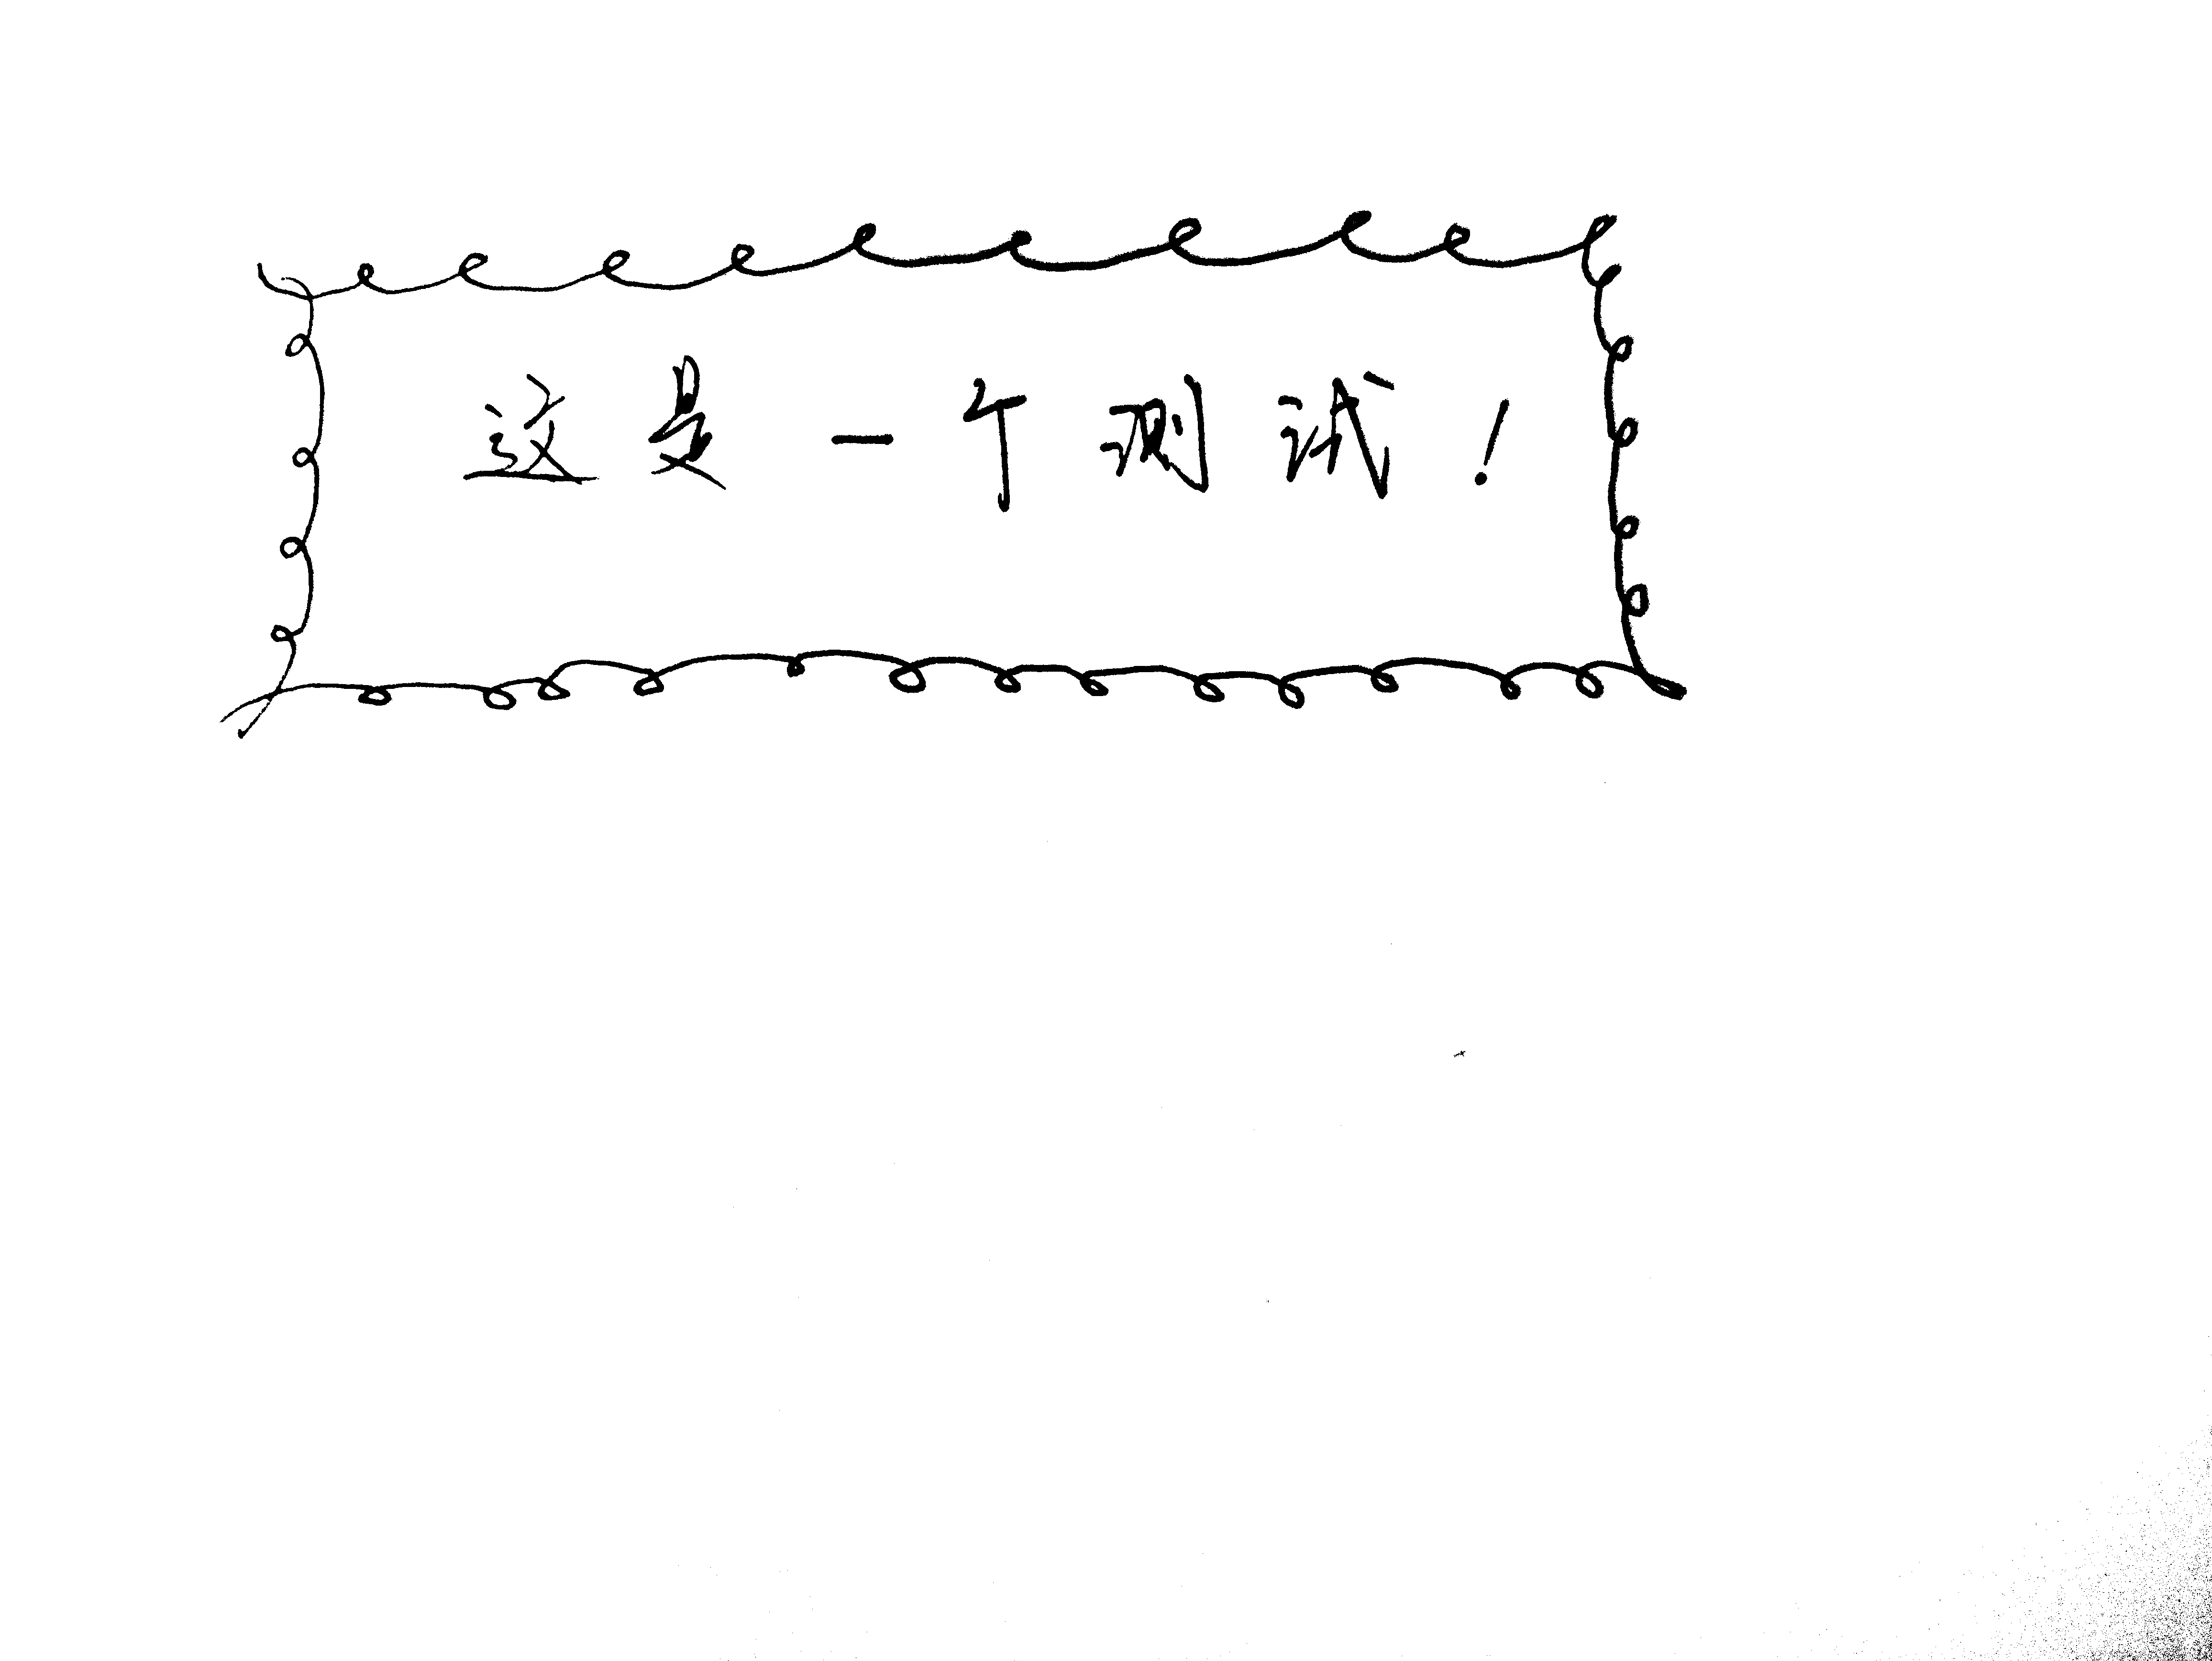 这是一个测试！